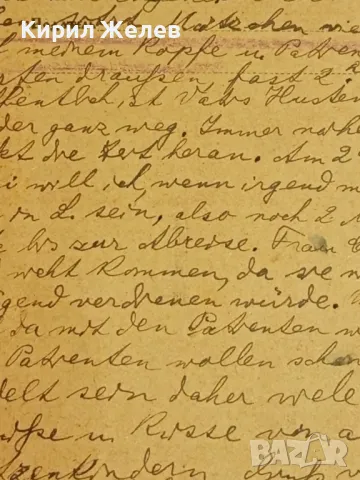 Кирил Желев
Mätzchen wie
meinem Kopfe in Patien
draußen fast 2
ist Vaters Husten
der ganz weg. Immer näh
die Zeit heran. Am 2
i will ich, wenn irgend m
in L. sein, also noch 2
bis zur Abreise. Frau
kommen, da sie n
gend verdienen würde.
da mit den Patienten w
Patienten wollen sch
delt sein daher
in Küsse von a
zenkindern
BAZAR
bg